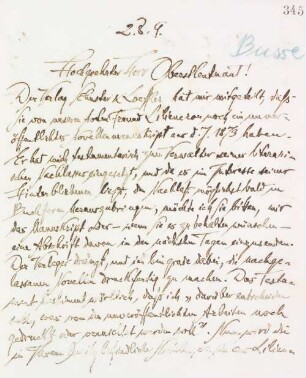 345
2.8.9.
Busse
Hochgeehrter Herr Oberstleutnant!
Der Verlag Schuster & Loeffler hat mir mitgeteilt, daß
Sie von unserm toten Freund Liliencron noch ein unver-
öffentlichtes Novellenmanuskript aus d. J. 1873 haben.
Er hat mich testamentarisch zum Verwalter seiner literari-
schen Nachlasses eingesetzt, und da es im Interesse seiner
Hinterbliebenen liegt, den Nachlaß möglichst bald in
Buchform herauszubringen, möchte ich Sie bitten, mir
das Manuskript oder – wenn Sie es zu behalten wünschen –
eine Abschrift davon in den nächsten Tagen einzusenden.
Der Verleger drängt, und ich bin grade dabei, die nachge-
lassenen Novellen druckfertig zu machen. Das Testa-
ment bestimmt wörtlich, daß ich "darüber entscheiden
soll, was von den unveröffentlichten Arbeiten noch
gedruckt oder vernichtet werden soll". Nun wird die
in Ihrem Besitz befindliche